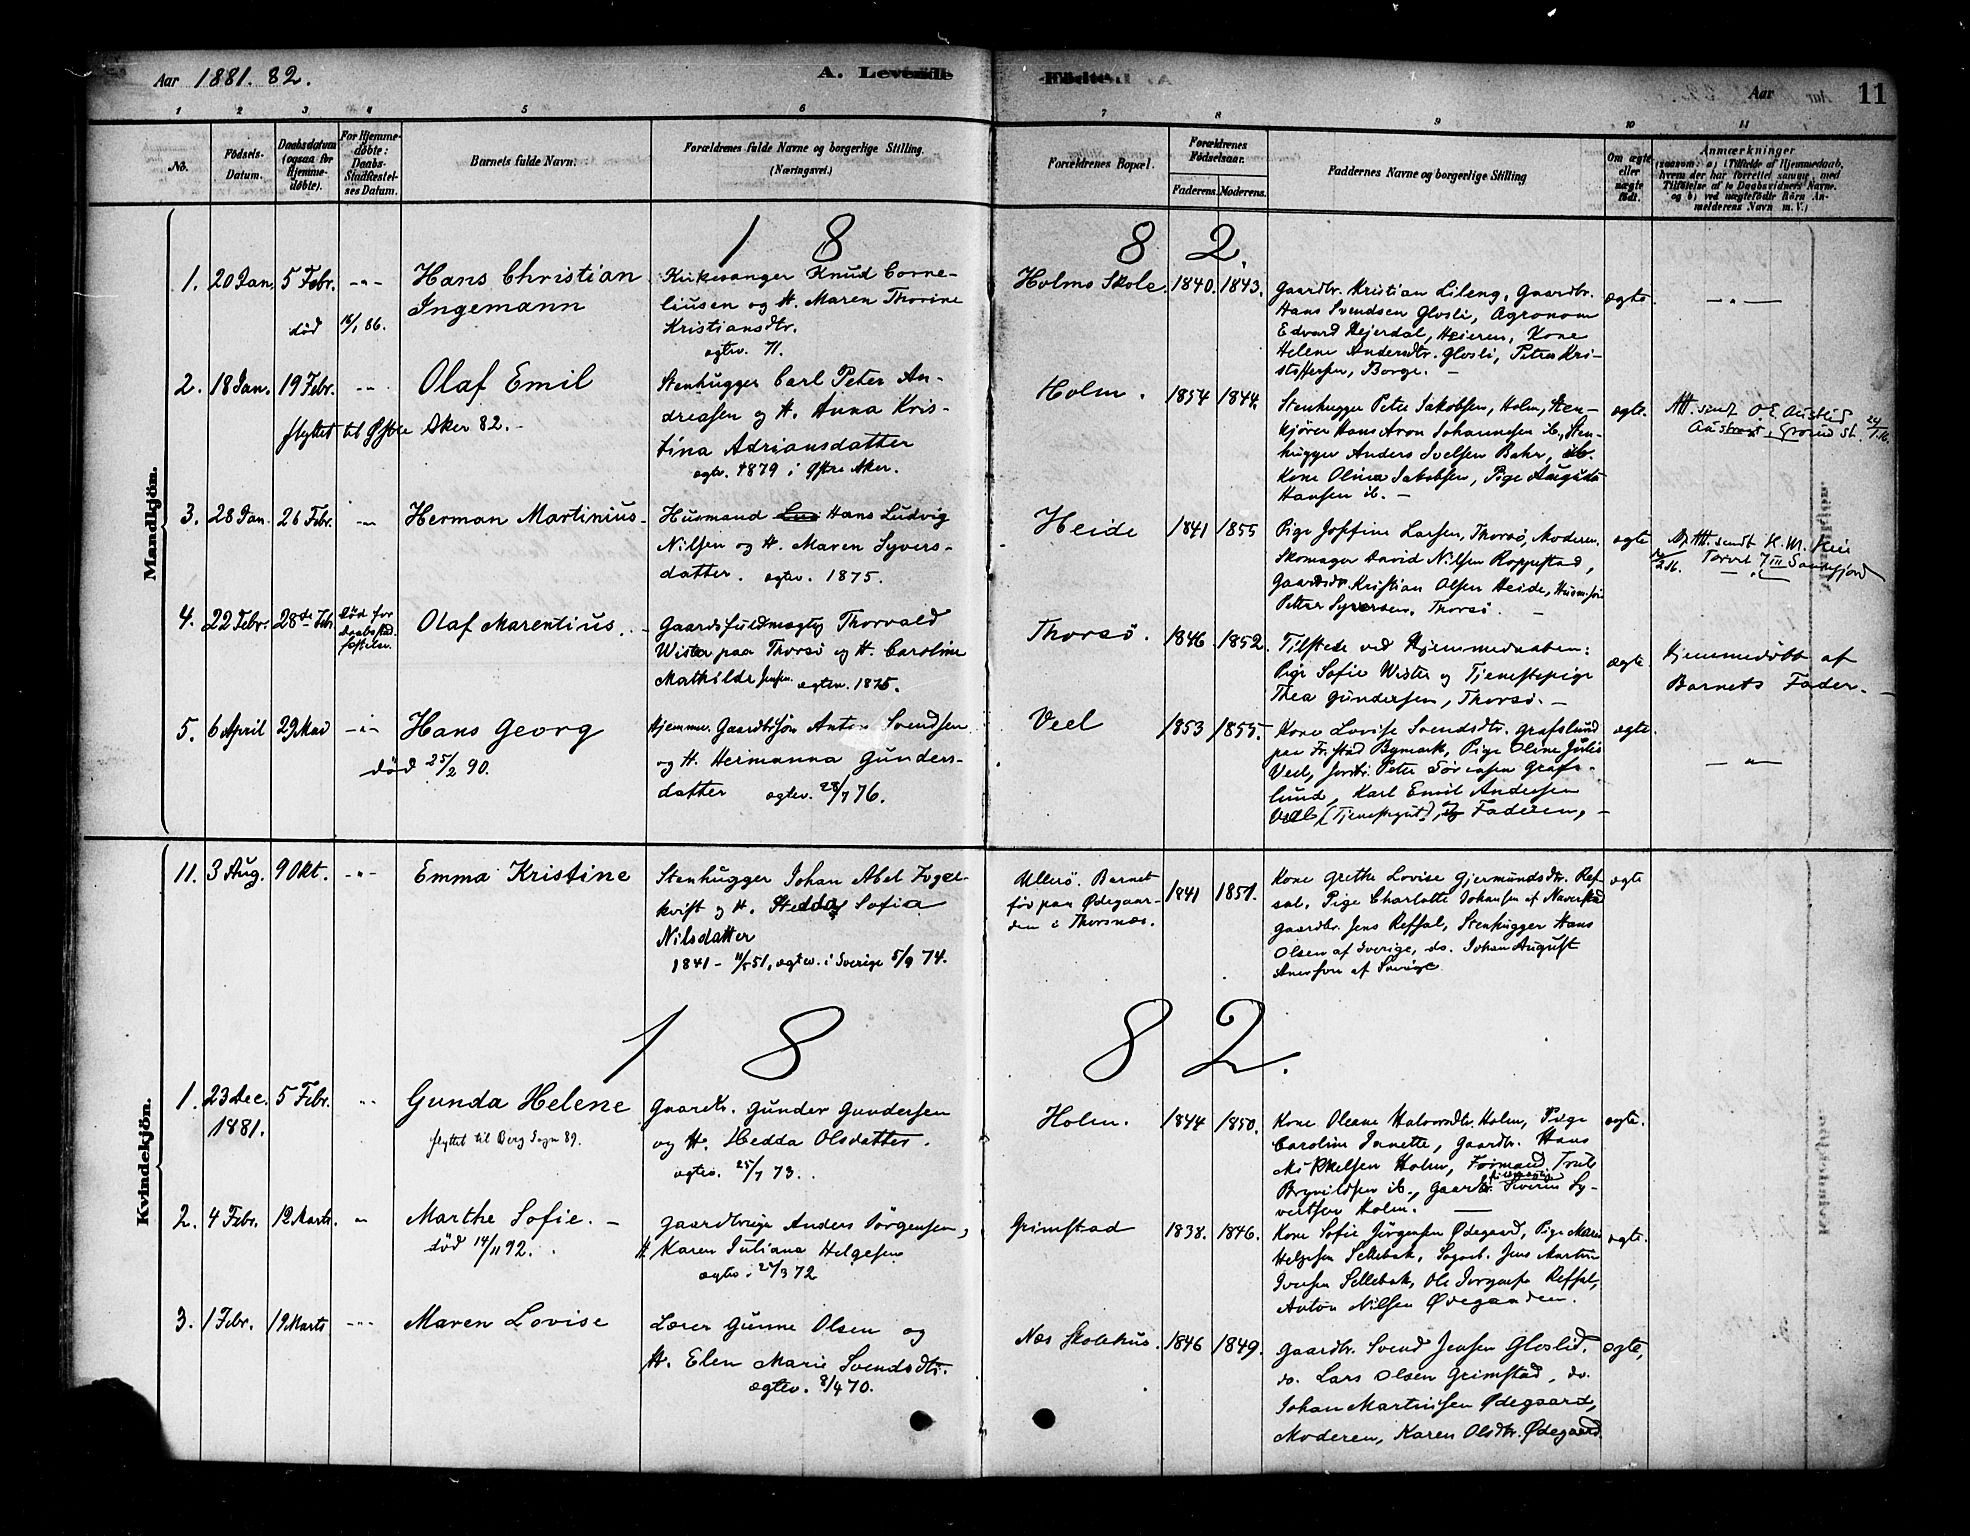 Aar 1881. 82.
A. Levende Fødte.
Aar 11
1 2 3 4 5 6 7 8 9 10 11
No.
Fødsels-
Datum.
Daabsdatum
(ogsaa for
Hjemme-
døbte).
For Hjemme-
døbte:
Daabs-
Stadfæstel-
ses Datum.
Barnets fulde Navn.
Forældrenes fulde Navne og borgerlige Stilling.
(Næringsvei.)
Forældrenes Bopæl.
Forældrenes
Fødselsaar.
Faderens. Moderens.
Faddernes Navne og borgerlige Stilling
Om ægte
eller
uægte
født.
Anmærkninger
(saasom: a) i Tilfælde af Hjemmedaab,
hvem der har forrettet samme, med
Tilføielse af to Daabsvidners Navne.
og b) ved uægtefødte Børn An-
melderens Navn m. V.)
Mandkjøn.
1 8 8 2.
1. 20 Jan. 5 Febr. -"-
død 18/1 86.
Hans Christian
Ingemann
Kirkesanger Knud Corne-
liusen og H. Maren Thorine
Kristiansdtr.
egtev. 71.
Holms Skole. 1840. 1843.
Gaardbr. Kristian Lileng, Gaardbr.
Hans Svendsen Glosli, Agronom
Edvard Hejerdal, Heieren, Kone
Helene Andersdtr. Glosli, Petter Kri-
stoffersen, Borge. -
ægte. -"-
2. 18 Jan. 19 Febr. -"-
Olaf Emil
flyttet til Østre Aker 82. -
Stenhugger Carl Peter An-
dreasen og H. Anna Kris-
tina Adriansdatter
egtv. 1879 i Østre Aker.
Holm. 1854 1844.
Stenhugger Peter Jakobsen, Holm, Sten-
kjører Hans Aron Johannesen ib., Sten-
hugger Anders Ivelsen Bahr, ib.
Kone Olina Jakobsen, Pige Augusta
Hansen ib. -
ægte.
Att. sendt O E
Grorud St.
3. 28 Jan. 26 Febr. -"-
Herman Martinius
Husmand Hans Ludvig
Nilsen og H. Maren Syvers-
datter. egtev. 1875.
Heide 1841 1855
Pige Josefine Larsen, Thorsø, Moderen,
Skomager David Nilsen Roppestad,
Gaardbr. Kristian Olsen Heide,
Petter Syversen, Thorsø. -
ægte
Att. sendt K. M.
Torvet 7 III Sandefjord
4. 22 Febr. 28de Febr.
død før
Daabsstad-
fæstelse.
Olaf Marentius.
Gaardsfuldmægtig Thorvald
Wister paa Thorsø og H. Caroline
Mathilde Jensen. egtev. 1875.
Thorsø. 1846. 1852.
Tilstede ved Hjemmedaaben:
Pige Sofie Wister og Tjenestepige
Thea Gundersen, Thorsø. -
ægte
Hjemmedøbt af
Barnets Fader. -
5. 6 April 29 Mai -"-
Hans Georg
død 25/2 90.
Hjemmev. Gaardbrsøn Anton Svendsen
og H. Hermanna Gunders-
datter egtev. 28/7 76.
Veel 1853 1855.
Kone Lovise Svendsdtr. Grafslund
paa Fr.stad Bymark, Pige Oline Julie
Veel, Peter Sørensen Grafs-
lund, Karl Emil Andersen
Veel (Tjenestgut), og Faderen, -
ægte. -"-
Kvindekjøn.
11. 3 Aug. 9 Okt. -"-
Emma Kristine
Stenhugger Johan Abel Fogel-
kvist og H. Hedda Sofia
Nilsdatter
1841 - 11/5 51, egtev. i Sverige 5/9 74.
Ullerø. Barnet
fød paa Ødegaar-
den i Thorsnæs.
1841 1851.
Kone Grethe Lovise Gjermundsdtr. Ref-
sal, Pige Charlotte Johansen af Naverstad
Gaardbr. Jens Refsal, Stenhugger Hans
Olsen af Sverige, do. Johan August
af Sverige
ægte
1 8 8 2.
1. 23 Dec. 5 Febr. -"-
1881.
Gunda Helene
flyttet til Berg Sogn 89.
Gaardbr. Gunder Gundersen
og H. Hedda Olsdatter.
egtev. 25/7 73.
Holm. 1844 1850.
Kone Oleane Halvorsdtr. Holm, Pige
Caroline Janette, Gaardbr. Hans
Mikkelsen Holm, Formand
ib., Gaardbr. Severin Sy-
vertsen Holm.
ægte.
2. 4 Febr. 12 Marts. "
Marthe Sofie. -
død 14/11 92.
Gaardbruger Anders Jørgensen,
H. Karen Juliana Helgesen
egtev. 27/3 72
Grimstad 1838. 1846.
Kone Sofie Jørgensen Ødegaard, Pige Maren
Helgesen Sellebak, Sagarb. Jens Martin
Iversen Sellebak, Ole Refsal,
Anton Nilsen Ødegaarden.
ægte.
3. 1 Febr. 19 Marts -"-
Maren Lovise
Lærer Gunne Olsen og
H. Elen Marie Svendsdtr.
egtev. 8/4 70.
Næs Skolehus. 1846 1849.
Gaardbr. Svend Jensen Gloslid,
do. Lars Olsen Grimstad, do.
Johan Martinsen Ødegaard,
Moderen, Karen Olsdtr. Ødegaard.
ægte,